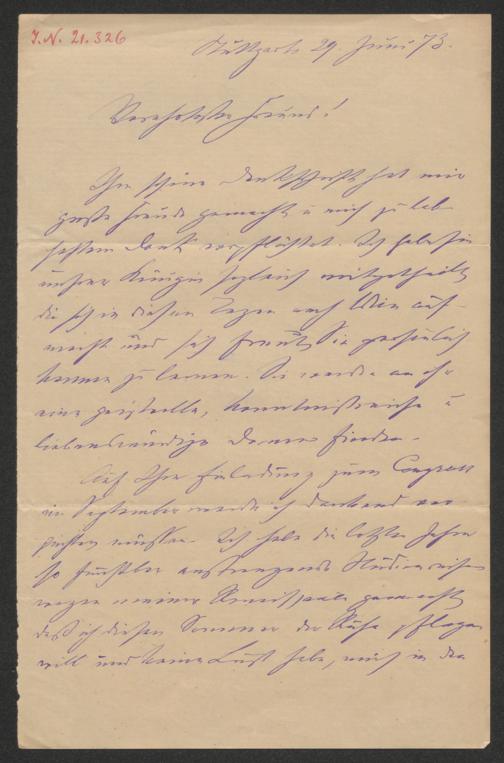 I.N. 21.326
Stuttgart 29. Juni 73.
Verehrtester Freund!
Ihre schöne Denkschrift hat mir
große Freude gemacht u mich zu leb-
haftem Dank verpflichtet. Ich habe sie
unserer Königin sogleich mitgetheilt
die sich in diesen Tagen nach Wien auf-
macht und sich freut, Sie persönlich
kennen zu lernen. Sie werden an ihr
eine geistvolle, kenntnißreiche u
liebenswürdige Dame finden.
Auf Ihre Einladung zum Congress
im September werde ich dankend ver-
zichten müssen. Ich habe die letzten Jahre
so furchtbar anstrengende Studienreisen
wegen meiner gemacht,
daß ich diesen Sommer der Ruhe pflegen
will und keine Lust habe, mich in den